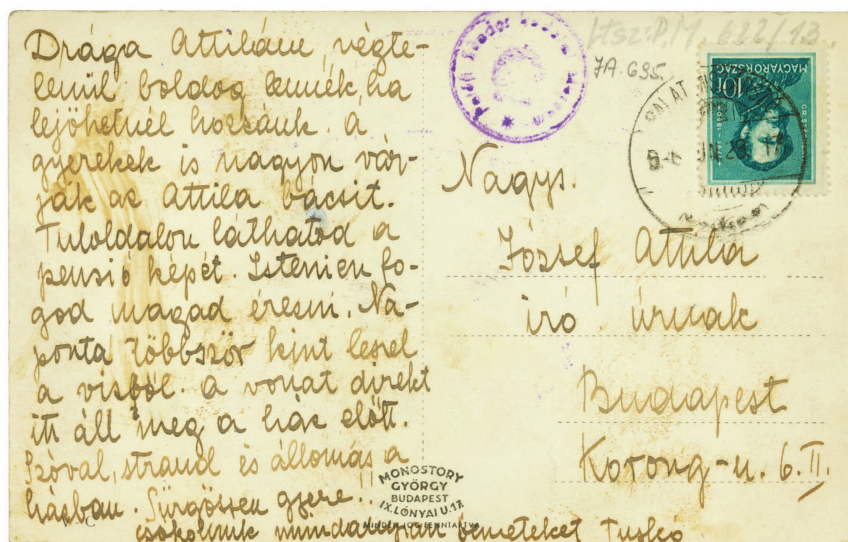 Drága Attilám, végte-
lenül boldog lennék, ha
lejöhetnél hozzánk. A
gyerekek is nagyon vár-
ják az Attila bácsit.
Tuloldalon láthatod a
pensió képét. Istenien fo-
god magad érezni. Na-
ponta többször kint leszel
a vízből. A vonat direkt
itt áll meg a ház előtt.
Szóval, strand és állomás a
házban. Sürgősen gyere!!
csókolunk mindannyian benneteket
MONOSTORY
GYÖRGY
BUDAPEST
IX. LÓNYAI U. 17.
MINDEN JOG FENNTARTVA
Petőfi Sándor
Ltsz: P.M. 622/13.
JA. 695.
MAGYARORSZÁG
10f
Nagys.
József Attila
író úrnak
Budapest
Korong-u. 6. II.